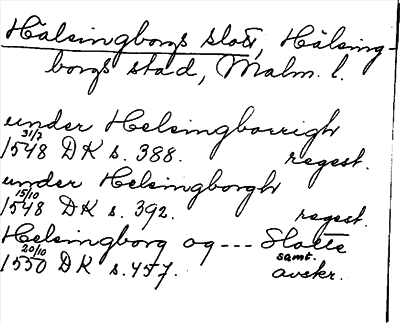 Hälsingborgs slott, Hälsing-
borgs stad, Malm. l.
under Helsingborrigh
1548 31/7 DK s. 388. regest.
under Helsingborgh
1548 15/10 DK s. 392. regest.
Helsingborg og --- Slotte
1550 20/10 DK s. 457. samt. avskr.